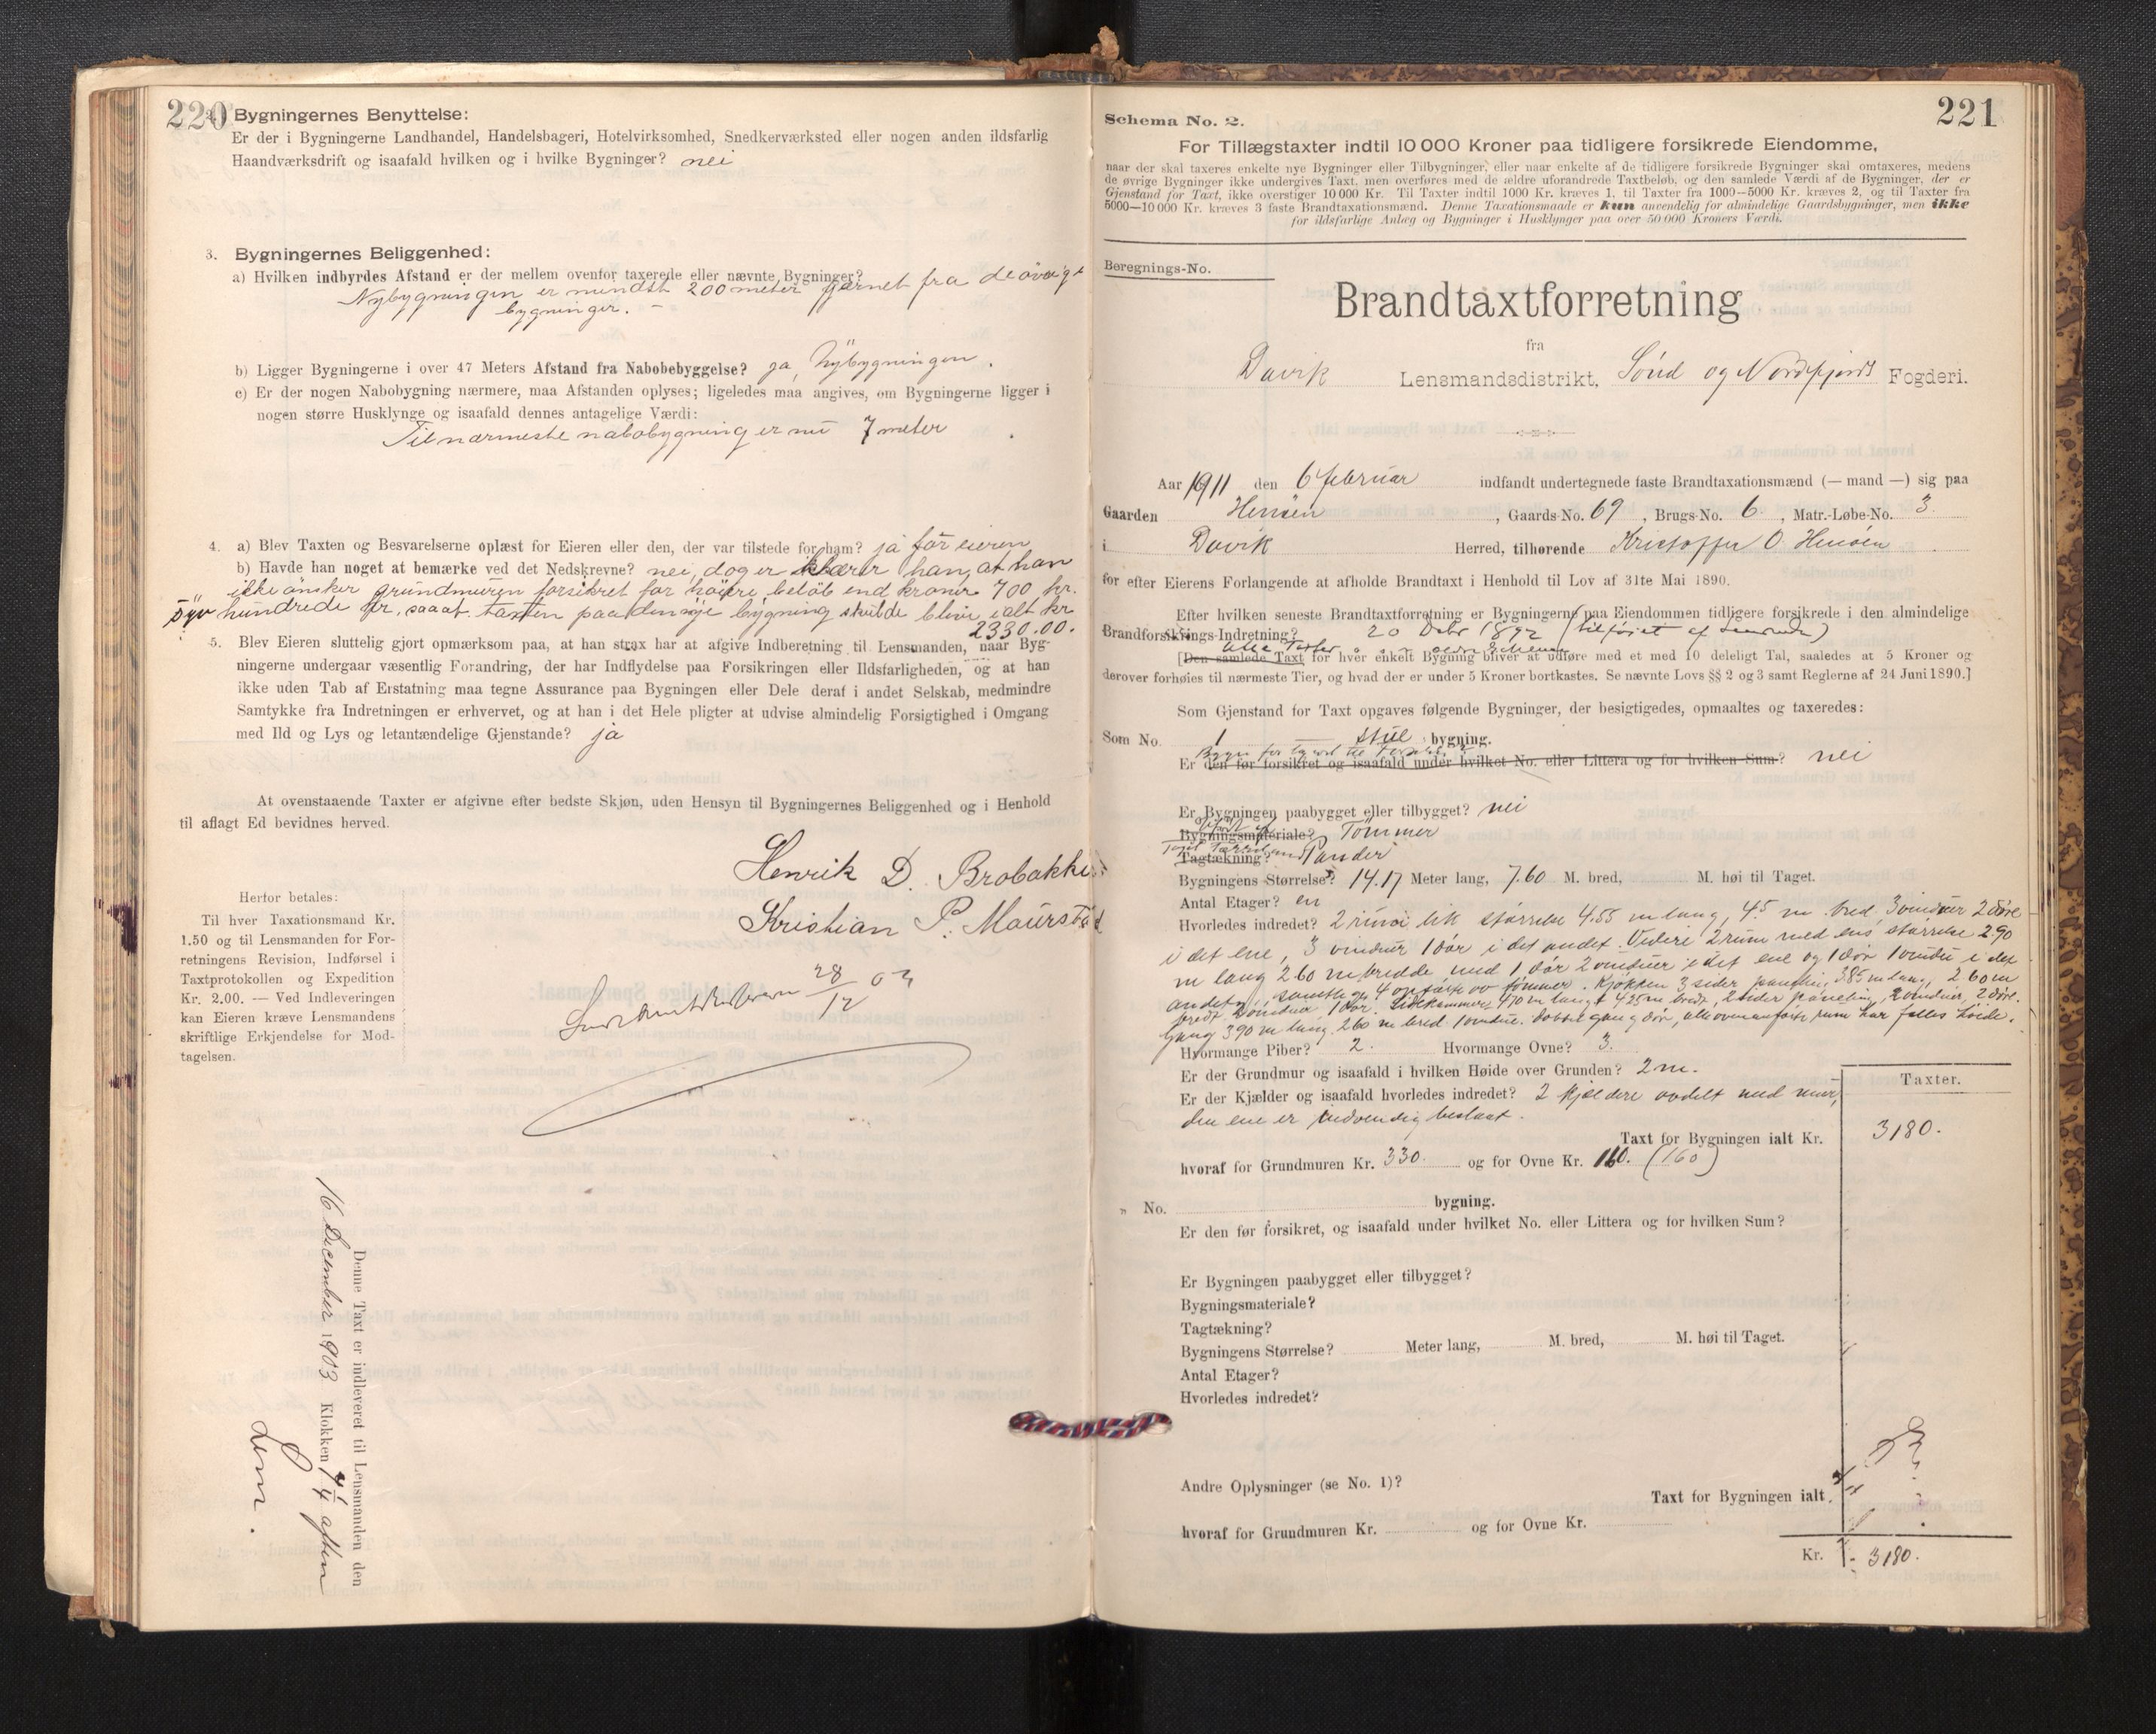 220
Bygningernes Benyttelse:
Er der i Bygningerne Landhandel, Handelsbageri, Hotelvirksomhed, Snedkerværksted eller nogen anden ildsfarlig
Haandværksdrift og isaafald hvilken og i hvilke Bygninger? nei
3. Bygningernes Beliggenhed:
a) Hvilken indbyrdes Afstand er der mellem ovenfor taxerede eller nævnte Bygninger?
Nybygningen er mindst 200 meter fjernet fra de øvrige
bygninger. –
b) Ligger Bygningerne i over 47 Meters Afstand fra Nabobebyggelse? ja, Nybygningen.
c) Er der nogen Nabobygning nærmere, maa Afstanden oplyses; ligeledes maa angives, om Bygningerne ligger i
nogen større Husklynge og isaafald dennes antagelige Værdi:
Til nærmeste nabobygning er nu 7 meter.
4. a) Blev Taxten og Besvarelserne oplæst for Eieren eller den, der var tilstede for ham? ja for eieren
b) Havde han noget at bemærke ved det Nedskrevne? nei, dog erklærer han, at han
ikke ønsker grundmuren forsikret for høiere beløb end kroner 700 kr.
syv hundrede kr. saaat taxten paa den nye bygning skulde blive ialt kr
2330.00.
5. Blev Eieren sluttelig gjort opmærksom paa, at han strax har at afgive Indberetning til Lensmanden, naar Byg-
ningerne undergaar væsentlig Forandring, der har Indflydelse paa Forsikringen eller Ildsfarligheden, og at han
ikke uden Tab af Erstatning maa tegne Assurance paa Bygningen eller Dele deraf i andet Selskab, medmindre
Samtykke fra Indretningen er erhvervet, og at han i det Hele pligter at udvise almindelig Forsigtighed i Omgang
med Ild og Lys og letantændelige Gjenstande? ja
At ovenstaaende Taxter er afgivne efter bedste Skjøn, uden Hensyn til Bygningernes Beliggenhed og i Henhold
til aflagt Ed bevidnes herved.
Henrik D. Brobakke
Kristian P. Maurstad
28/12 03
Herfor betales:
Til hver Taxationsmand Kr.
1.50 og til Lensmanden for For-
retningens Revision, Indførsel i
Taxtprotokollen og Expedition
Kr. 2.00. — Ved Indleveringen
kan Eieren kræve Lensmandens
skriftlige Erkjendelse for Mod-
tagelsen.
Denne Taxt er indleveret til Lensmanden den
16 December 1903 Klokken 7 1/4 aften
221
Schema No. 2.
For Tillægstaxter indtil 10 000 Kroner paa tidligere forsikrede Eiendomme,
naar der skal taxeres enkelte nye Bygninger eller Tilbygninger, eller naar enkelte af de tidligere forsikrede Bygninger skal omtaxeres, medens
de øvrige Bygninger ikke undergives Taxt, men overføres med de ældre uforandrede Taxtbeløb, og den samlede Værdi af de Bygninger, der er
Gjenstand for Taxt, ikke overstiger 10 000 Kr. Til Taxter indtil 1000 Kr. kræves 1, til Taxter fra 1000—5000 Kr. kræves 2, og til Taxter fra
5000—10 000 Kr. kræves 3 faste Brandtaxationsmænd. Denne Taxationsmaade er kun anvendelig for almindelige Gaardsbygninger, men ikke
for ildsfarlige Anlæg og Bygninger i Husklynger paa over 50 000 Kroners Værdi.
Beregnings-No.
Brandtaxtforretning
fra
Davik Lensmandsdistrikt, Sønd og Nordfjords Fogderi.
Aar 1911 den 6 februar indfandt undertegnede faste Brandtaxationsmænd (— mand —) sig paa
Gaarden Henøen, Gaards-No. 69, Brugs-No. 6, Matr.-Løbe-No. 3
i Davik Herred, tilhørende Kristoffer O Henøen
for efter Eierens Forlangende at afholde Brandtaxt i Henhold til Lov af 31te Mai 1890.
Efter hvilken seneste Brandtaxtforretning er Bygningerne paa Eiendommen tidligere forsikrede i den almindelige
Brandforsikrings-Indretning? 20 Debr 1892 (tilføiet af
[Den samlede Taxt for hver enkelt Bygning bliver at udføre med et med 10 deleligt Tal, saaledes at 5 Kroner og
derover forhøies til nærmeste Tier, og hvad der er under 5 Kroner bortkastes. Se nævnte Lovs §§ 2 og 3 samt Reglerne af 24 Juni 1890.]
Som Gjenstand for Taxt opgaves følgende Bygninger, der besigtigedes, opmaaltes og taxeredes:
Som No. 1 bygning.
Er den før forsikret og isaafald under hvilket No. eller Littera og for hvilken Sum? nei
Er Bygningen paabygget eller tilbygget? nei
Bygningsmateriale? Tømmer
Tagtækning? Pander
Bygningens Størrelse? 14.17 Meter lang, 7.60 M. bred, M. høi til Taget.
Antal Etager? en
Hvorledes indredet? 2 rum i lik størrelse 4.55 m lang, 4.5 m bred, 3 vinduer 2 døre
i det ene, 3 vinduer 1 dør i det andet. Videre 2 rum med ens størrelse 2.90
m lang 2.60 m bredde, med 1 dør 2 vinduer i det ene og 1 dør 1 vindu i det
andet, samtlige 4 opførte av tømmer. Kjøkken 3 sider paneling, 3.85 m lang, 2.60 m
bredt 2 vinduer, 1 dør. 4.70 m lang 4.25 m bredt, 2 sider paneling, 2 vinduer, 2 døre.
Gang 3.90 m lang 2.60 m bred 1 vindu, dobbel gangdør, alle ovenanførte rum har fælles høide.
Hvormange Piber? 2. Hvormange Ovne? 3.
Er der Grundmur og isaafald i hvilken Høide over Grunden? 2 m.
Er der Kjælder og isaafald hvorledes indredet? 2 kjeldere avdelt med mur,
den ene er indvendig beslaat.
Taxter.
Taxt for Bygningen ialt Kr. 3180.
hvoraf for Grundmuren Kr. 330. og for Ovne Kr. 160. (160)
„ No. bygning.
Er den før forsikret, og isaafald under hvilket No. eller Littera og for hvilken Sum?
Er Bygningen paabygget eller tilbygget?
Bygningsmateriale?
Tagtækning?
Bygningens Størrelse? Meter lang, M. bred, M. høi til Taget.
Antal Etager?
Hvorledes indredet?
Andre Oplysninger (se No. 1)?
Taxt for Bygningen ialt
hvoraf for Grundmuren Kr. og for Ovne Kr.
Kr. 3180.